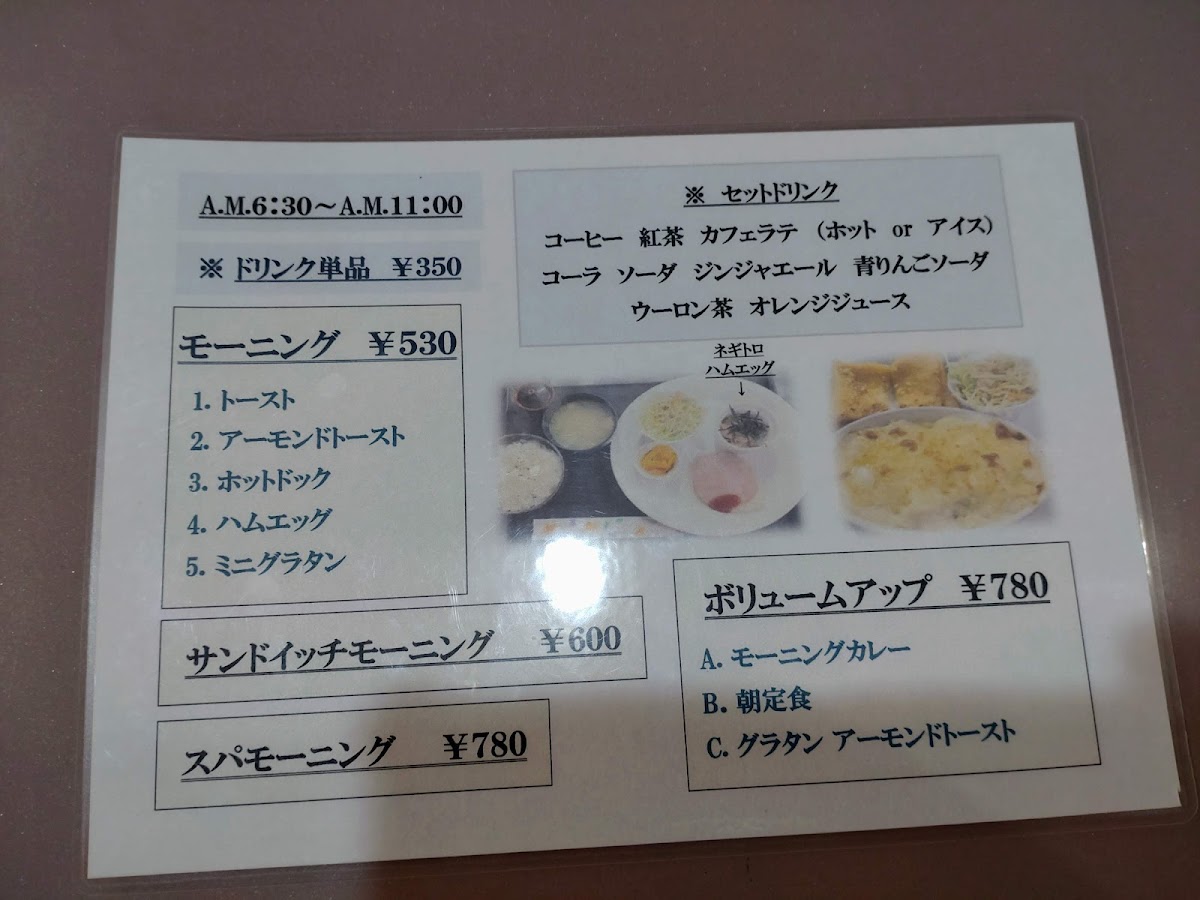 A.M.6:30～A.M.11:00
※ ドリンク単品 ￥350
モーニング ￥530
1. トースト
2. アーモンドトースト
3. ホットドック
4. ハムエッグ
5. ミニグラタン
サンドイッチモーニング ￥600
スパモーニング ￥780
※ セットドリンク
コーヒー 紅茶 カフェラテ （ホット or アイス）
コーラ ソーダ ジンジャエール 青りんごソーダ
ウーロン茶 オレンジジュース
ネギトロ
ハムエッグ
↓
ボリュームアップ ￥780
A. モーニングカレー
B. 朝定食
C. グラタン アーモンドトースト